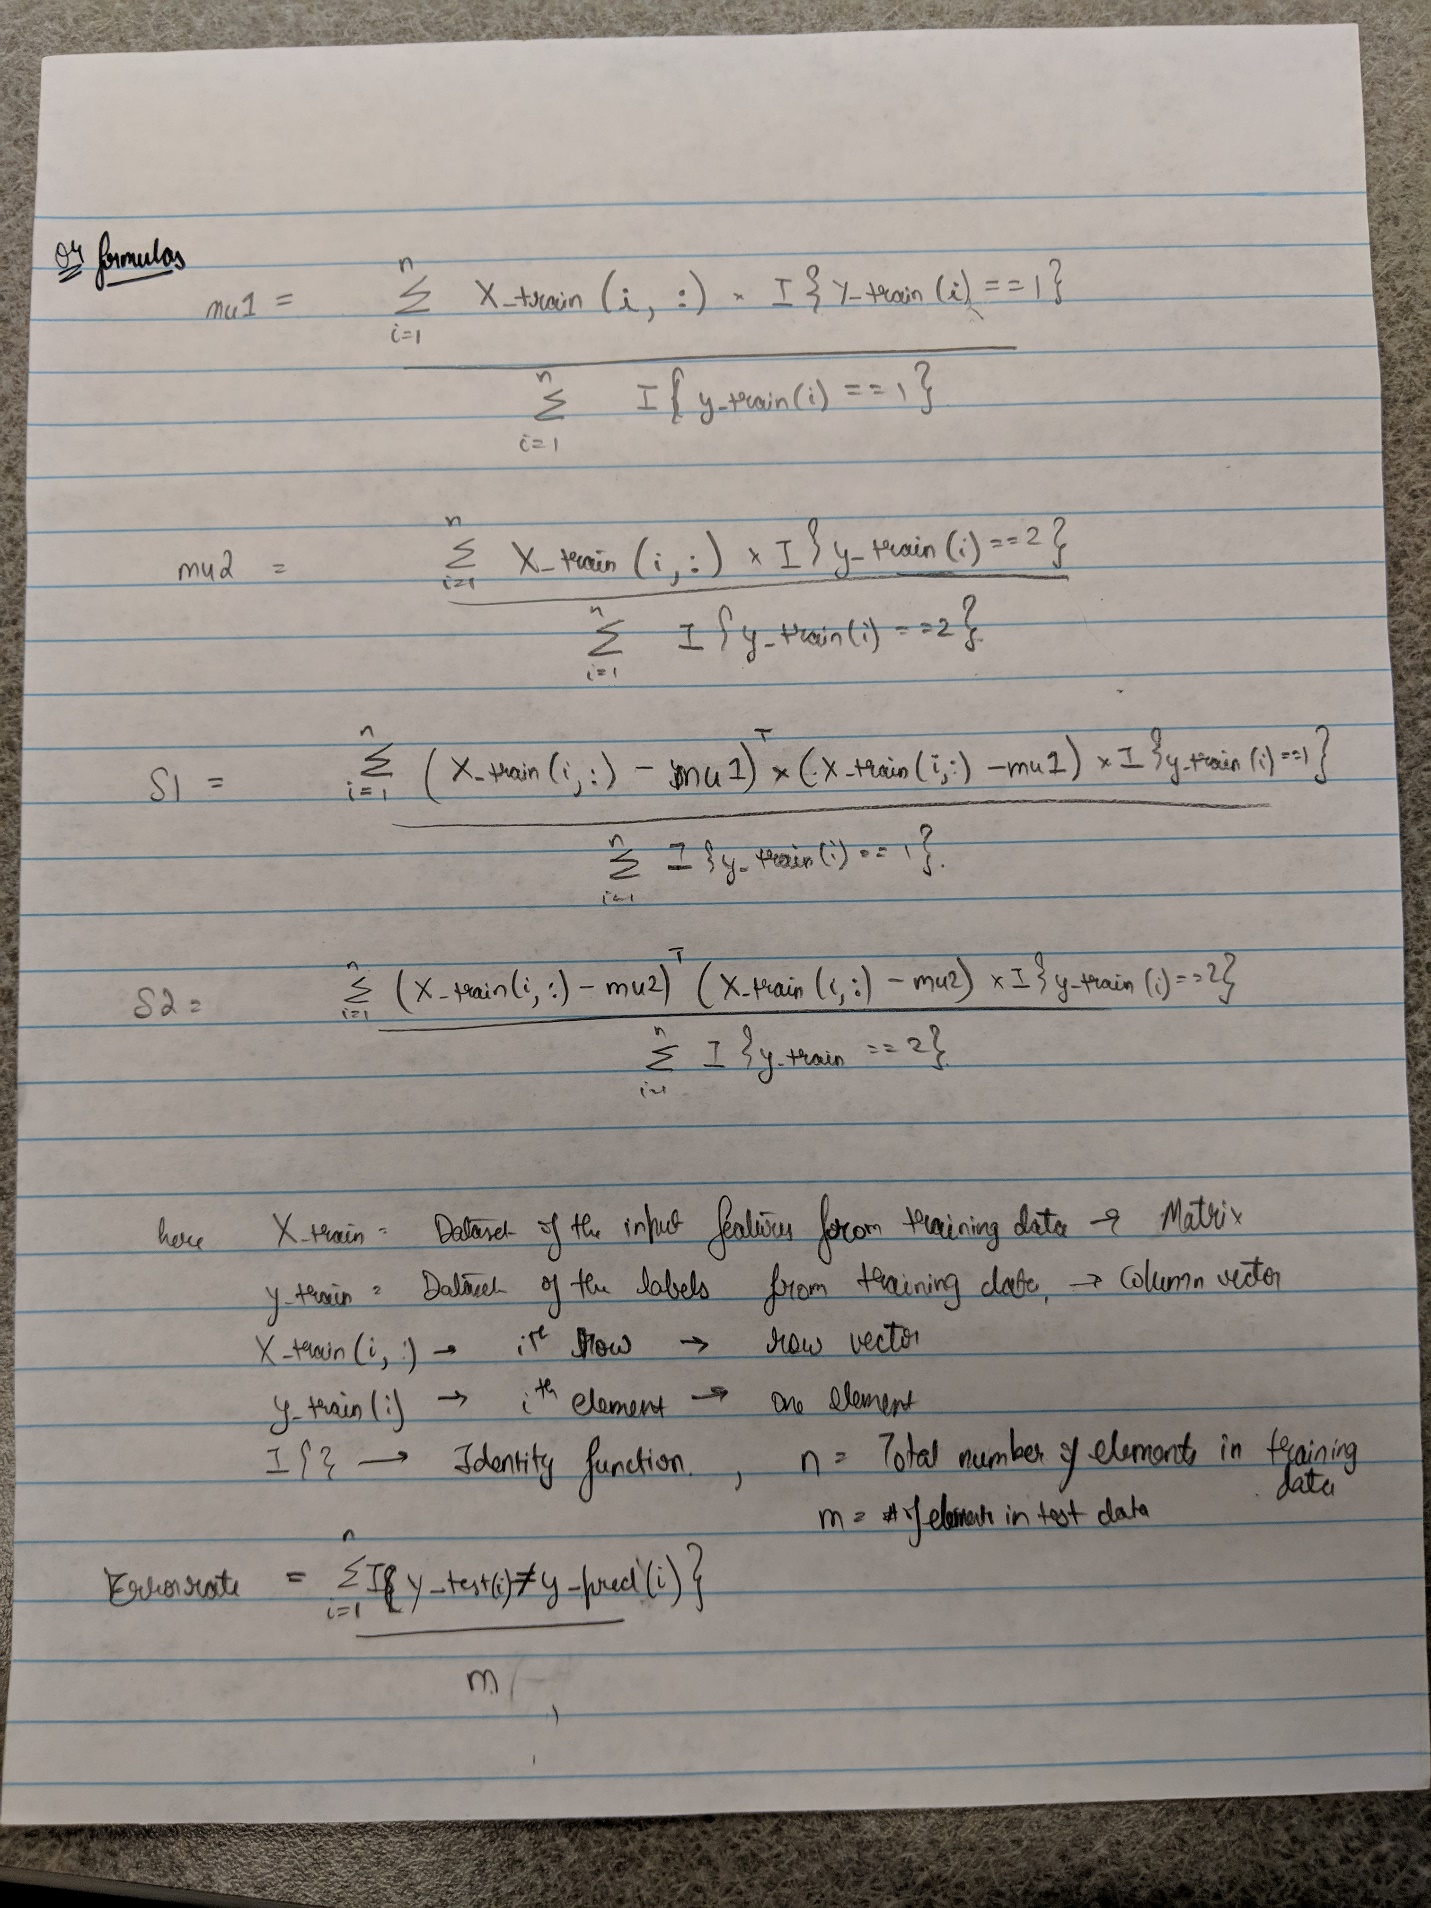 Q4 formulas
mu1 = n Σ i=1 X_train (i, :) × I{y_train (i) == 1}
n Σ i=1 I{y_train(i) == 1}
mu2 = n Σ i=1 X_train (i, :) × I{y_train (i) == 2}
n Σ i=1 I{y_train(i) == 2}
S1 = n Σ i=1 (X_train(i,:) - mu1)^T × (X_train(i,:) - mu1) × I{y_train (i) == 1}
n Σ i=1 I{y_train(i) == 1}.
S2 = n Σ i=1 (X_train(i,:) - mu2)^T (X_train(i,:) - mu2) × I{y_train (i) == 2}
n Σ i=1 I{y_train == 2}.
here X_train = Dataset of the input features from training data → Matrix
y_train = Dataset of the labels from training data, → Column vector
X_train(i, :) → ith row → row vector
y_train(i) → ith element → one element
I{} → Identity function. , n = Total number of elements in training data
m = # of elements in test data
Error rate = n Σ i=1 I{y_test(i) ≠ y_pred(i)}
m